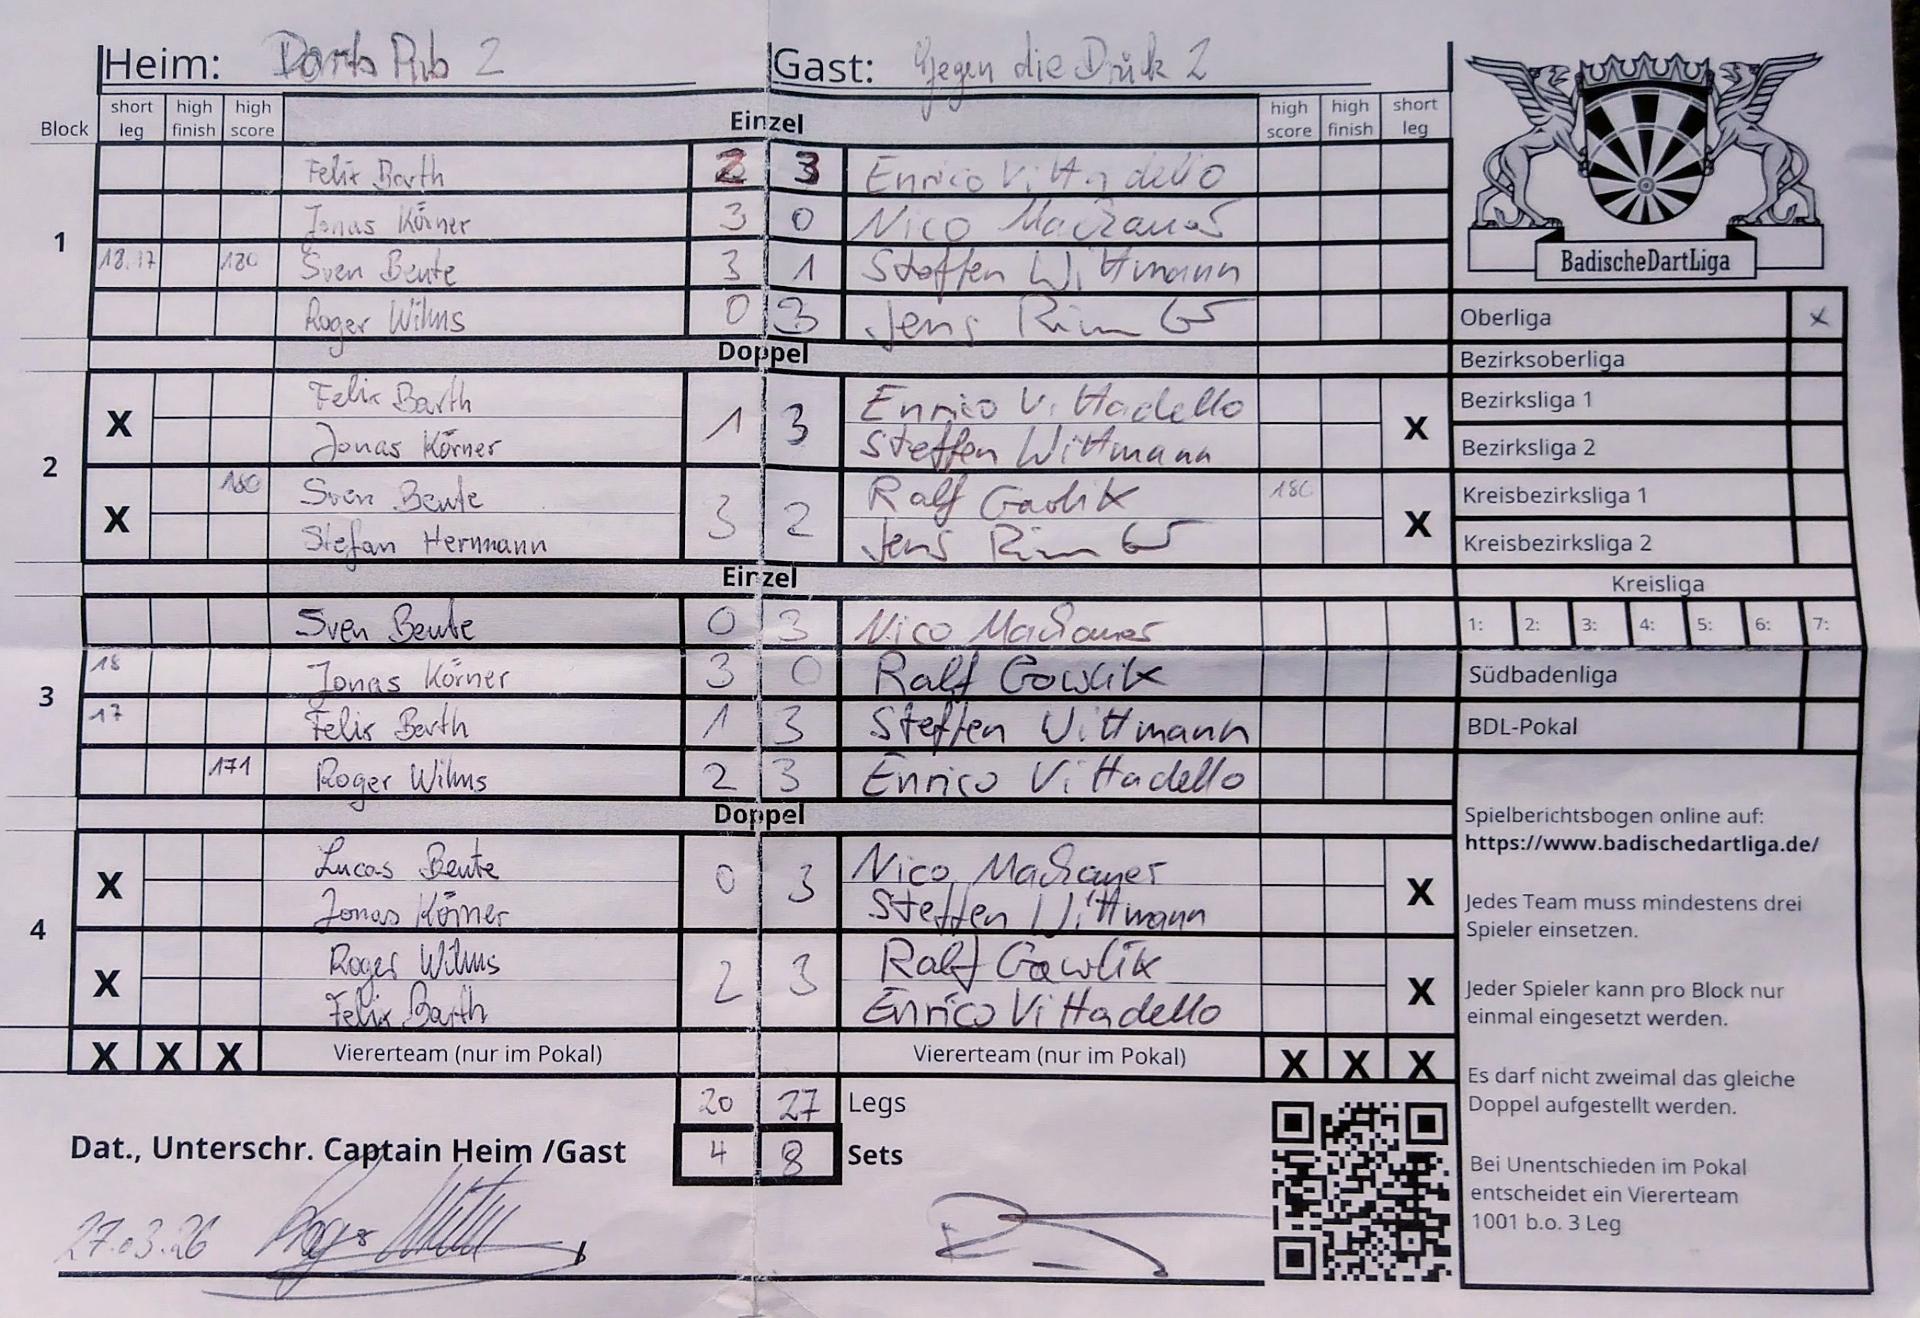 Heim: Darts Pub 2 Gast: Gegen die Drück 2
Block short leg high finish high score Einzel high score high finish short leg
1
Felix Barth 2 3 Enrico Vittadello
Jonas Körner 3 0 Nico Machauer
18.17 180 Sven Beute 3 1 Steffen Wittmann
Roger Wilms 0 3 Jens
Doppel
2
X Felix Barth 1 3 Enrico Vittadello X
Jonas Körner Steffen Wittmann
X 180 Sven Beute 3 2 Ralf Gawlik 180 X
Stefan Herrmann Jens
Einzel
3
Sven Beute 0 3 Nico Machauer
18 Jonas Körner 3 0 Ralf Gawlik
17 Felix Barth 1 3 Steffen Wittmann
171 Roger Wilms 2 3 Enrico Vittadello
Doppel
4
X Lucas Beute 0 3 Nico Machauer X
Jonas Körner Steffen Wittmann
X Roger Wilms 2 3 Ralf Gawlik X
Felix Barth Enrico Vittadello
X X X Viererteam (nur im Pokal) Viererteam (nur im Pokal) X X X
20 27 Legs
4 8 Sets
Dat., Unterschr. Captain Heim /Gast
27.03.26
BadischeDartLiga
Oberliga x
Bezirksoberliga
Bezirksliga 1
Bezirksliga 2
Kreisbezirksliga 1
Kreisbezirksliga 2
Kreisliga
1: 2: 3: 4: 5: 6: 7:
Südbadenliga
BDL-Pokal
Spielberichtsbogen online auf:
https://www.badischedartliga.de/
Jedes Team muss mindestens drei
Spieler einsetzen.
Jeder Spieler kann pro Block nur
einmal eingesetzt werden.
Es darf nicht zweimal das gleiche
Doppel aufgestellt werden.
Bei Unentschieden im Pokal
entscheidet ein Viererteam
1001 b.o. 3 Leg